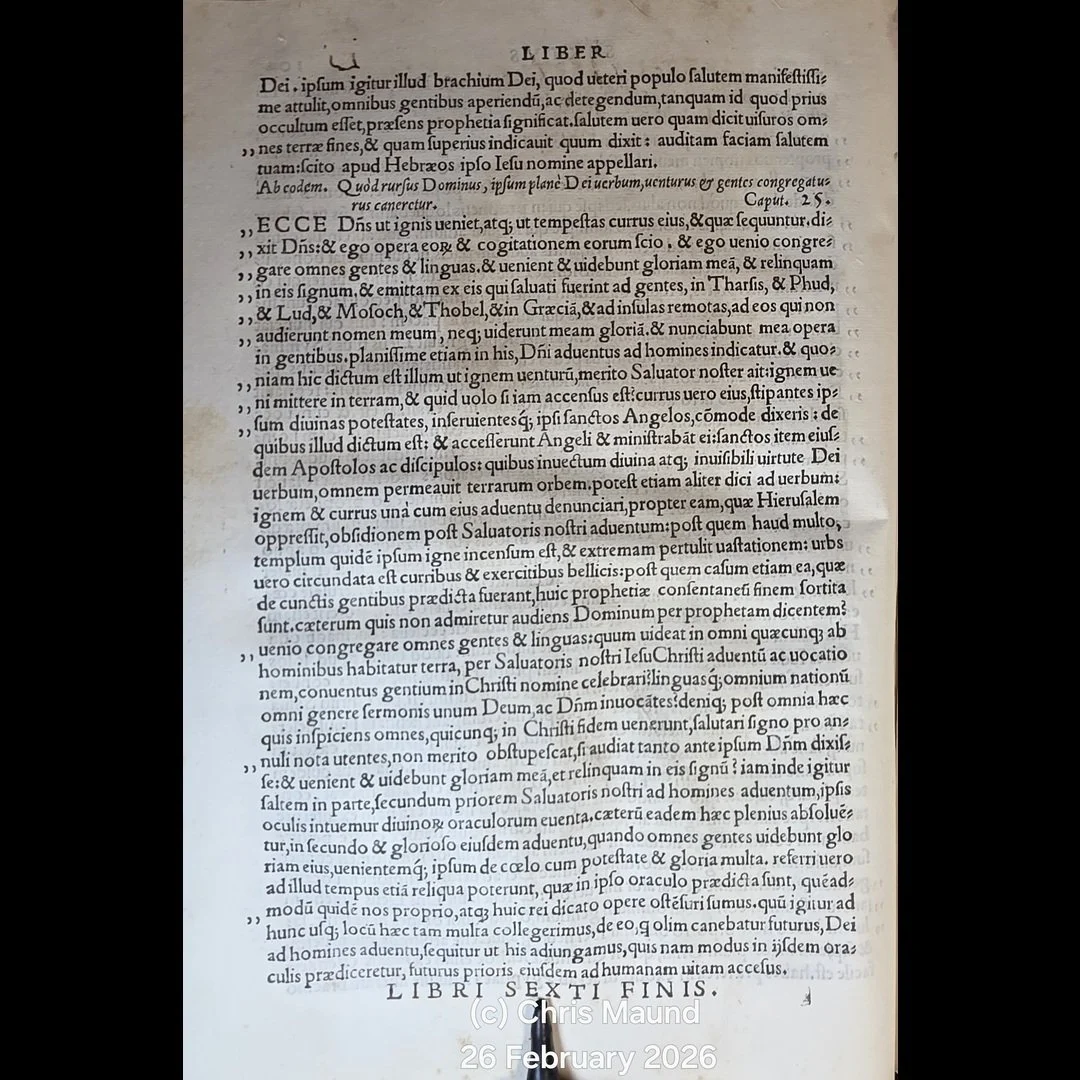 LIBER
Dei. ipſum igitur illud brachium Dei, quod ueteri populo ſalutem manifeſtiſſi⸗
me attulit, omnibus gentibus aperiendũ, ac detegendum, tanquam id quod prius
occultum eſſet, præſens prophetia ſignificat. ſalutem uero quam dicit uiſuros om⸗
,, nes terræ fines, & quam ſuperius indicauit quum dixit: auditam faciam ſalutem
tuam: ſcito apud Hebræos ipſo Ieſu nomine appellari.
Ab eodem. Quòd rurſus Dominus, ipſum planè Dei uerbum, uenturus & gentes congregatu⸗
rus caneretur. Caput. 25.
,, ECCE Dñs ut ignis ueniet, atq; ut tempeſtas currus eius, & quæ ſequuntur. di⸗
,, xit Dñs: & ego opera eoꝝ & cogitationem eorum ſcio. & ego uenio congre⸗
,, gare omnes gentes & linguas. & uenient & uidebunt gloriam meã, & relinquam
,, in eis ſignum. & emittam ex eis qui ſaluati fuerint ad gentes, in Tharſis, & Phud,
,, & Lud, & Moſoch, & Thobel, & in Græciã, & ad inſulas remotas, ad eos qui non
,, audierunt nomen meum, neq; uiderunt meam gloriã. & nunciabunt mea opera
in gentibus. planiſſime etiam in his, Dñi aduentus ad homines indicatur. & quo⸗
,, niam hic dictum eſt illum ut ignem uenturũ, merito Saluator noſter ait: ignem ue
,, ni mittere in terram, & quid uolo ſi iam accenſus eſt? currus uero eius, ſtipantes ip⸗
,, ſum diuinas poteſtates, inſeruientesq́; ipſi ſanctos Angelos, cõmode dixeris: de
quibus illud dictum eſt: & acceſſerunt Angeli & miniſtrabãt ei: ſanctos item eiuſ⸗
dem Apoſtolos ac diſcipulos: quibus inuectum diuina atq; inuiſibili uirtute Dei
uerbum, omnem permeauit terrarum orbem. poteſt etiam aliter dici ad uerbum:
ignem & currus unà cum eius aduentu denunciari, propter eam, quæ Hieruſalem
oppreſſit, obſidionem poſt Saluatoris noſtri aduentum: poſt quem haud multo,
templum quidẽ ipſum igne incenſum eſt, & extremam pertulit uaſtationem: urbs
uero circundata eſt curribus & exercitibus bellicis: poſt quem caſum etiam ea, quæ
de cunctis gentibus prædicta fuerant, huic prophetiæ conſentaneũ finem ſortita
ſunt. cæterum quis non admiretur audiens Dominum per prophetam dicentem?
,, uenio congregare omnes gentes & linguas: quum uideat in omni quæcunq; ab
hominibus habitatur terra, per Saluatoris noſtri Ieſu Chriſti aduentũ ac uocatio
nem, conuentus gentium in Chriſti nomine celebrari? linguasq́; omnium nationũ
omni genere ſermonis unum Deum, ac Dñm inuocãtes? deniq; poſt omnia hæc
quis inſpiciens omnes, quicunq; in Chriſti fidem uenerunt, ſalutari ſigno pro an⸗
nuli nota utentes, non merito obſtupeſcat, ſi audiat tanto ante ipſum Dñm dixiſ⸗
,, ſe: & uenient & uidebunt gloriam meã, et relinquam in eis ſignũ? iam inde igitur
ſaltem in parte, ſecundum priorem Saluatoris noſtri ad homines aduentum, ipſis
oculis intuemur diuinoꝝ oraculorum euenta. cæterũ eadem hæc plenius abſoluẽ⸗
tur, in ſecundo & glorioſo eiuſdem aduentu, quando omnes gentes uidebunt glo
riam eius, uenientemq́; ipſum de cœlo cum poteſtate & gloria multa. referri uero
ad illud tempus etiã reliqua poterunt, quæ in ipſo oraculo prædicta ſunt, quẽad⸗
,, modũ quidẽ nos proprio, atq; huic rei dicato opere oſtẽſuri ſumus. quũ igitur ad
hunc uſq; locũ hæc tam multa collegerimus, de eo, q olim canebatur futurus, Dei
ad homines aduentu, ſequitur ut his adiungamus, quis nam modus in ijſdem ora⸗
culis prædiceretur, futurus prioris eiuſdem ad humanam uitam acceſus.
LIBRI SEXTI FINIS.
(c) Chris Maund
26 February 2026